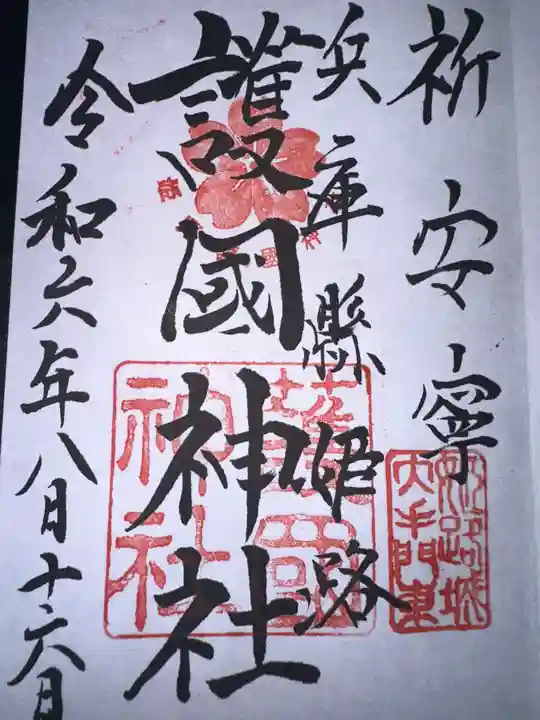 祈安寧
兵庫縣姫路
護國神社
令和六年八月十六日
姫路城
大手門東
護國
神社